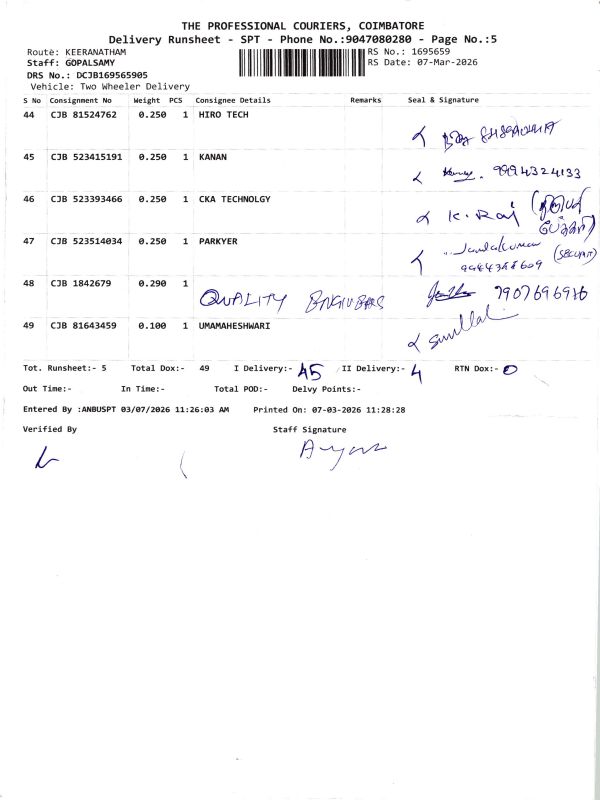 THE PROFESSIONAL COURIERS, COIMBATORE
Delivery Runsheet - SPT - Phone No.:9047080280 - Page No.:5
Route: KEERANATHAM
RS No.: 1695659
Staff: GOPALSAMY
RS Date: 07-Mar-2026
DRS No.: DCJB169565905
Vehicle: Two Wheeler Delivery
S No Consignment No Weight PCS Consignee Details Remarks Seal & Signature
44 CJB 81524762 0.250 1 HIRO TECH
45 CJB 523415191 0.250 1 KANAN
9994324133
46 CJB 523393466 0.250 1 CKA TECHNOLGY
K. Raj
47 CJB 523514034 0.250 1 PARKYER
48 CJB 1842679 0.290 1 QUALITY
7907696916
49 CJB 81643459 0.100 1 UMAMAHESHWARI
Tot. Runsheet:- 5 Total Dox:- 49 I Delivery:- 45 II Delivery:- 4 RTN Dox:- 0
Out Time:- In Time:- Total POD:- Delvy Points:-
Entered By :ANBUSPT 03/07/2026 11:26:03 AM Printed On: 07-03-2026 11:28:28
Verified By Staff Signature